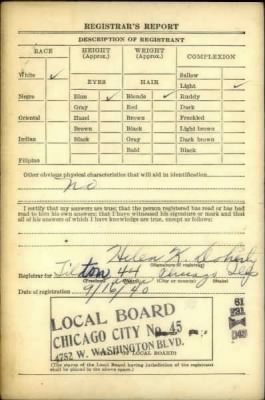 REGISTRAR'S REPORT
DESCRIPTION OF REGISTRANT
RACE HEIGHT (Approx.) WEIGHT (Approx.) COMPLEXION
White ✓ Sallow
EYES HAIR Light ✓
Negro Blue ✓ Blonde ✓ Ruddy
Gray Red Dark
Oriental Hazel Brown Freckled
Brown Black Light brown
Indian Black Gray Dark brown
Bald Black
Filipino
Other obvious physical characteristics that will aid in identification
No
I certify that my answers are true; that the person registered has read or has had
read to him his own answers; that I have witnessed his signature or mark and that
all of his answers of which I have knowledge are true, except as follows:
Helen K. Doherty
(Signature of registrar)
Registrar for 44 Chicago
(Precinct) (City or county) (State)
Date of registration
LOCAL BOARD
CHICAGO CITY No. 45
4752 W. WASHINGTON BLVD.
OF LOCAL BOARD)
(The stamp of the Local Board having jurisdiction of the registrant
shall be placed in the above space.)